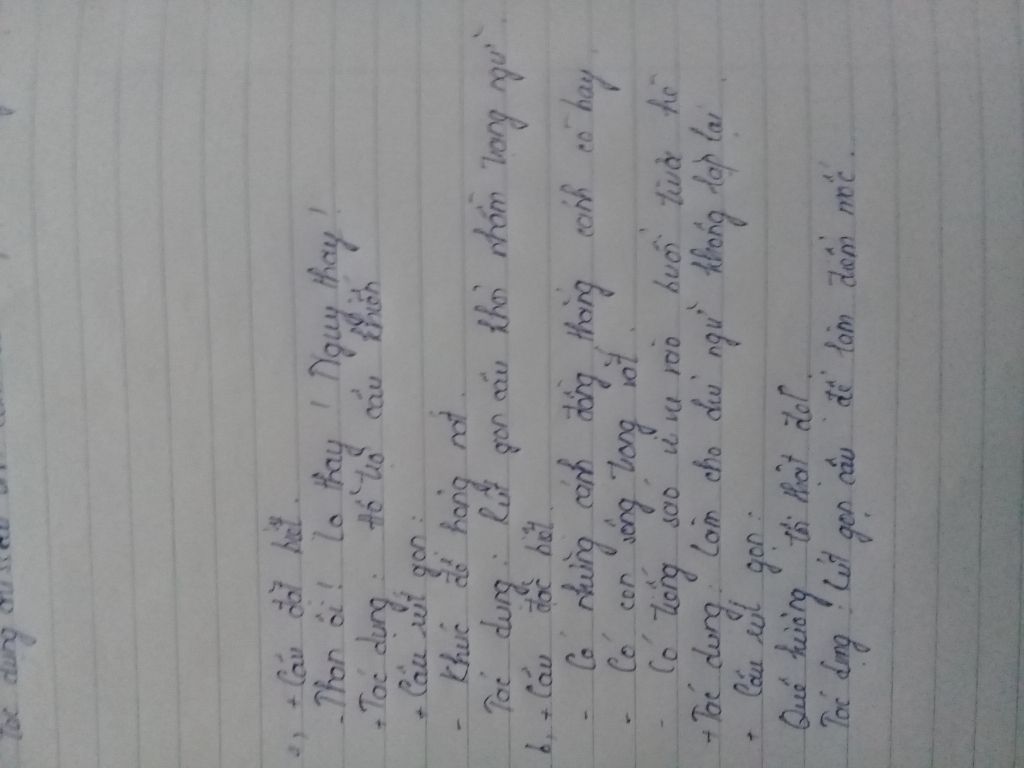 Tác dụng
a, + Câu đặc biệt.
- Than ôi ! Lo thay ! Nguy thay !
+ Tác dụng: Hỗ trợ câu
+ Câu rút gọn:
- Khúc đê hỏng rồi.
Tác dụng: Rút gọn câu khỏi nhầm trong ngữ
b, + Câu đặc biệt.
- Có những cánh đồng thẳng cánh cò bay.
- Có con sông trong vắt.
- Có tiếng sáo vi vu vào buổi trưa hè
+ Tác dụng: Làm cho dù ngữ không lặp lại
+ Câu rút gọn:
Quê hương tôi thật đẹp.
Tác dụng: Rút gọn câu để làm